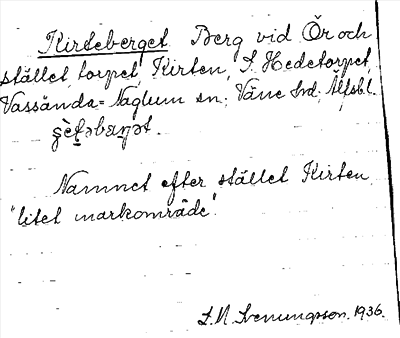 Kirteberget Berg vid Ör och
stället, torpet, Kirten, S. Hedetorpet,
Vassända-Naglum sn; Väne hd; Älfsbl.
Namnet efter stället Kirten
"litet markområde".
S. N. Svenungsson. 1936.